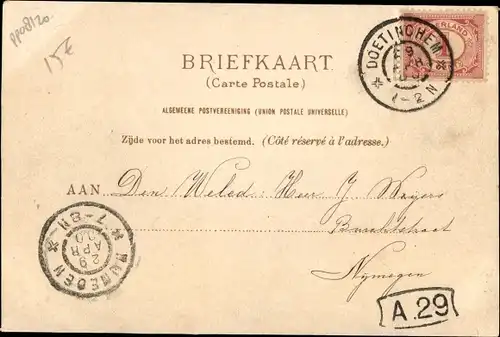 PP08120
15€
ERLAND
DOETINCHEM
1-2N
BRIEFKAART
(Carte Postale)
ALGEMEENE POSTVEREENIGING (UNION POSTALE UNIVERSELLE)
Zijde voor het adres bestemd. (Côté réservé à l'adresse.)
AAN Den Weled: Heer J Weijers
Burchtstraat
Nymegen
7-8N
29
APR
00
NIJMEGEN
A.29